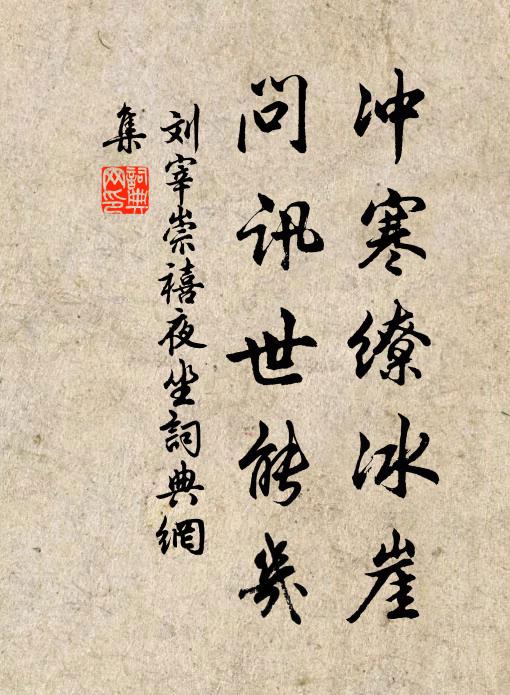 冲寒缭冰崖
问讯世能几
刘宰崇禧夜坐詞典網
集
詞典网印